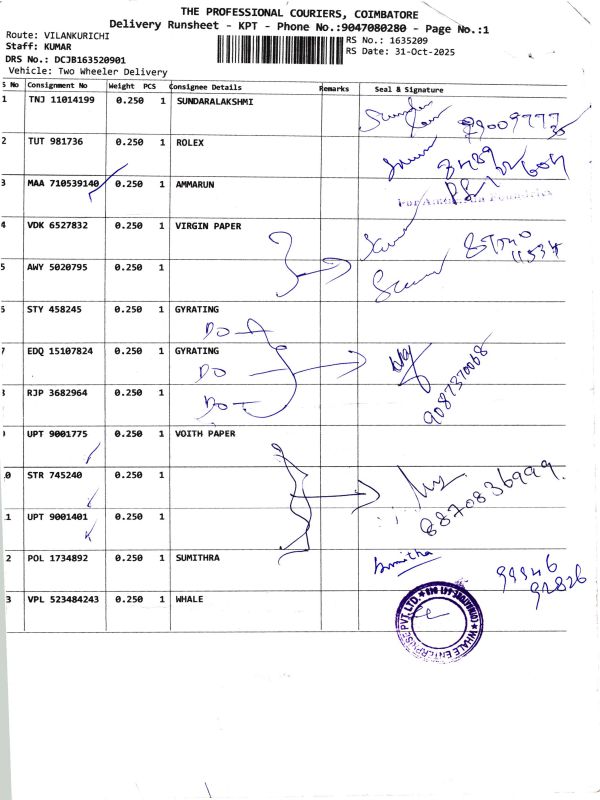 THE PROFESSIONAL COURIERS, COIMBATORE
Delivery Runsheet - KPT - Phone No.:9047080280 - Page No.:1
Route: VILANKURICHI
Staff: KUMAR
RS No.: 1635209
DRS No.: DCJB163520901
RS Date: 31-Oct-2025
Vehicle: Two Wheeler Delivery
S No Consignment No Weight PCS Consignee Details Remarks Seal & Signature
1 TNJ 11014199 0.250 1 SUNDARALAKSHMI
2 TUT 981736 0.250 1 ROLEX
3 MAA 710539140 0.250 1 AMMARUN
4 VDK 6527832 0.250 1 VIRGIN PAPER
5 AWY 5020795 0.250 1
6 STY 458245 0.250 1 GYRATING
DO
7 EDQ 15107824 0.250 1 GYRATING
DO
9087370068
8 RJP 3682964 0.250 1
DO
9 UPT 9001775 0.250 1 VOITH PAPER
0 STR 745240 0.250 1
8870836999.
1 UPT 9001401 0.250 1
2 POL 1734892 0.250 1 SUMITHRA
Sumitha
99946
92826
3 VPL 523484243 0.250 1 WHALE
WHALE ENTERPRISE PVT. LTD.